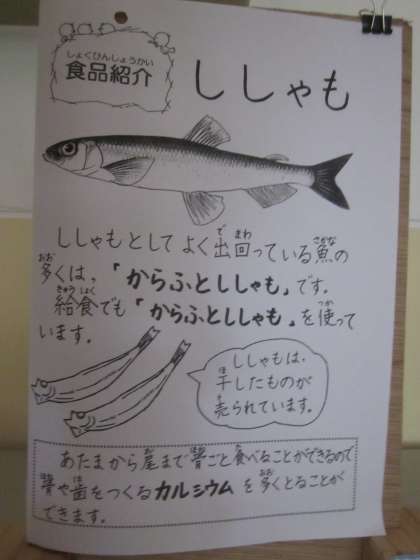 しょくひんしょうかい
食品紹介
ししゃも
ししゃもとしてよく出回っている魚の
多くは、「からふとししゃも」です。
給食でも「からふとししゃも」を使って
います。
ししゃもは、
干したものが
売られています。
あたまから尾まで骨ごと食べることができるので
骨や歯をつくるカルシウムを多くとることが
できます。